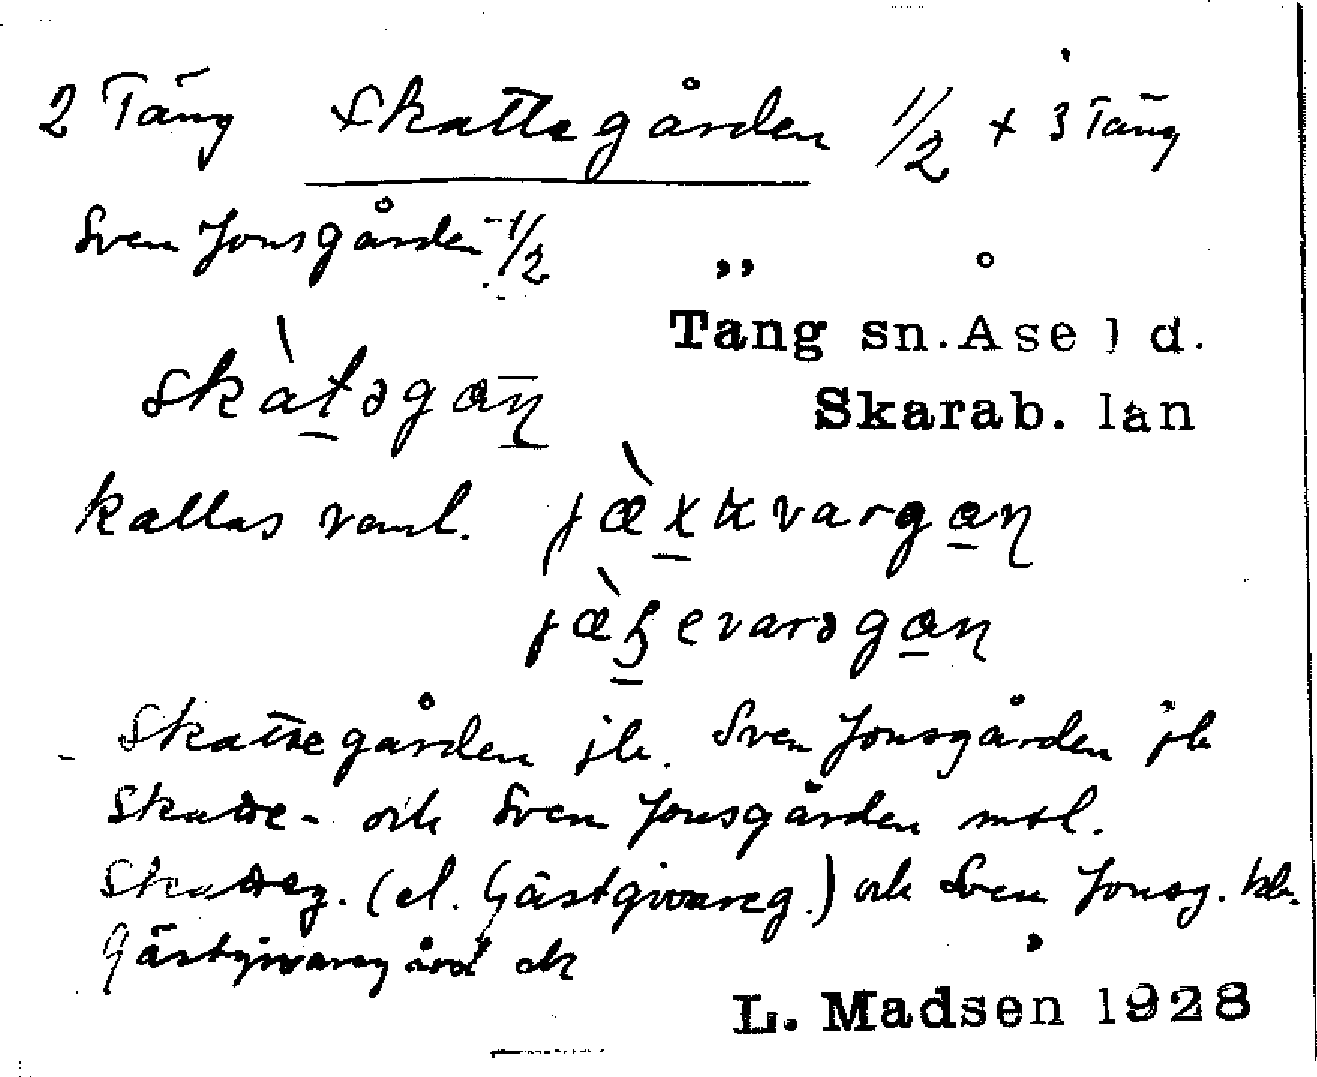 2 Täng Skattegården 1/2 + 3 Täng
Sven Jonsgården 1/2
Täng sn. Åse hd.
skàtəgaɳ
Skarab. län
kallas vanl. jæ̀xkvargaɳ
jæ̀ʂevarəgaɳ
Skattegården jb. Sven Jonsgården jb
Skatte- och Sven Jonsgården mtl.
Skatteg. (el. Gästgivareg.) och Sven Jonsg.
Gästgivaregård
L. Madsen 1928